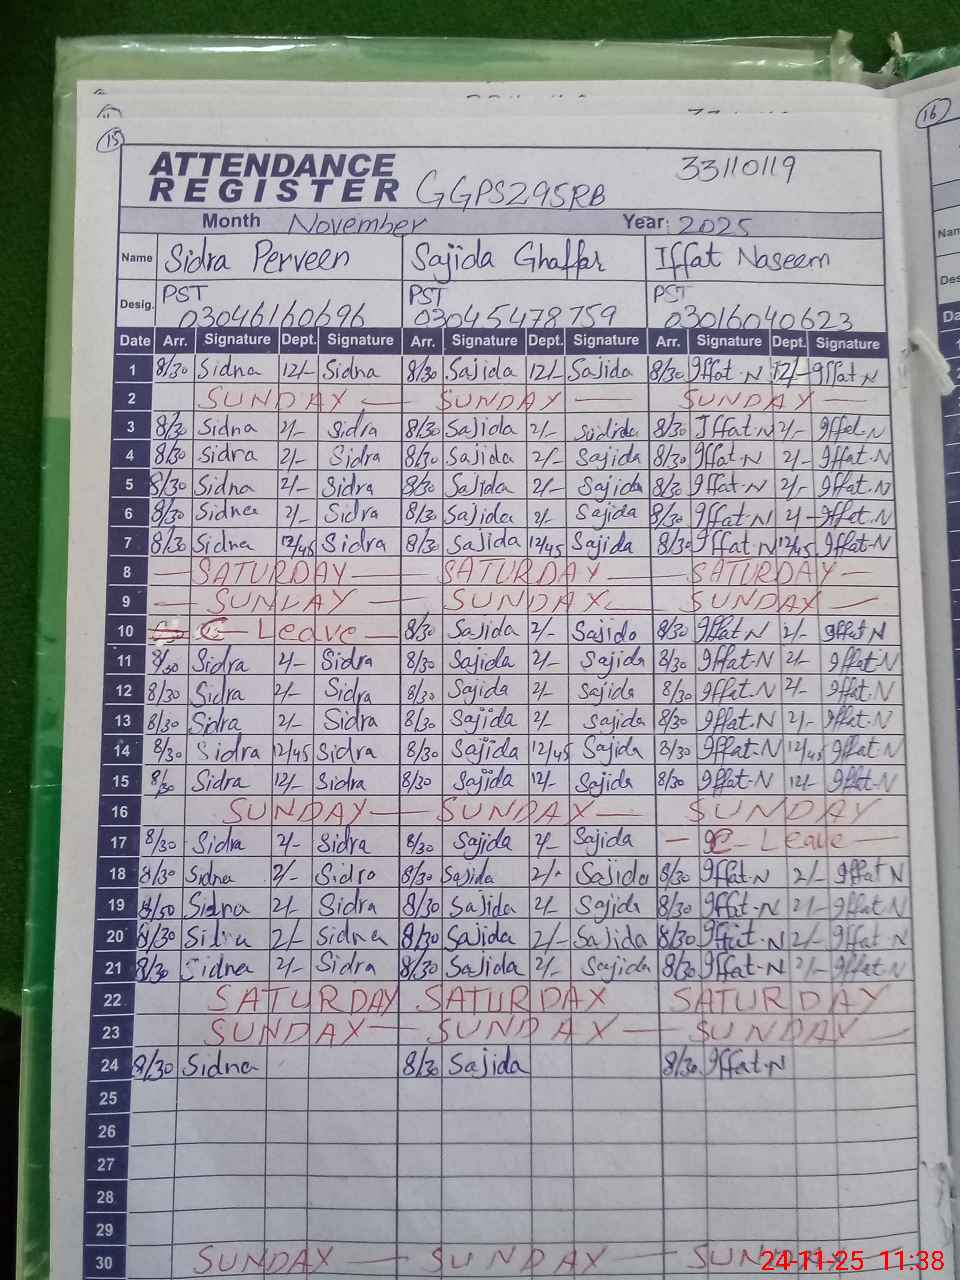 15
16
ATTENDANCE
REGISTER GGPS295RB 33110119
Month November Year: 2025
Name Sidra Perveen Sajida Ghaffar Iffat Naseem
Desig. PST 03046160696 PST 03045478759 PST 03016040623
Date Arr. Signature Dept. Signature Arr. Signature Dept. Signature Arr. Signature Dept. Signature
1 8/30 Sidra 12/- Sidra 8/30 Sajida 12/- Sajida 8/30 Iffat-N 12/- Iffat-N
2 SUNDAY — SUNDAY — SUNDAY —
3 8/30 Sidra 2/- Sidra 8/30 Sajida 2/- 8/30 Iffat-N 2/- Iffat-N
4 8/30 Sidra 2/- Sidra 8/30 Sajida 2/- Sajida 8/30 Iffat-N 2/- Iffat-N
5 8/30 Sidra 2/- Sidra 8/30 Sajida 2/- Sajida 8/30 Iffat-N 2/- Iffat-N
6 8/30 Sidra 2/- Sidra 8/30 Sajida 2/- Sajida 8/30 Iffat-N 2/- Iffat-N
7 8/30 Sidra 12/45 Sidra 8/30 Sajida 12/45 Sajida 8/30 Iffat-N 12/45 Iffat-N
8 — SATURDAY — SATURDAY — SATURDAY —
9 — SUNDAY — SUNDAY — SUNDAY —
10 C — Leave — 8/30 Sajida 2/- Sajida 8/30 Iffat-N 2/- Iffat-N
11 8/30 Sidra 2/- Sidra 8/30 Sajida 2/- Sajida 8/30 Iffat-N 2/- Iffat-N
12 8/30 Sidra 2/- Sidra 8/30 Sajida 2/- Sajida 8/30 Iffat-N 2/- Iffat-N
13 8/30 Sidra 2/- Sidra 8/30 Sajida 2/- Sajida 8/30 Iffat-N 2/- Iffat-N
14 8/30 Sidra 12/45 Sidra 8/30 Sajida 12/45 Sajida 8/30 Iffat-N 12/45 Iffat-N
15 8/30 Sidra 12/- Sidra 8/30 Sajida 12/- Sajida 8/30 Iffat-N 12/- Iffat-N
16 SUNDAY — SUNDAY — SUNDAY
17 8/30 Sidra 2/- Sidra 8/30 Sajida 2/- Sajida — C — Leave —
18 8/30 Sidra 2/- Sidra 8/30 Sajida 2/- Sajida 8/30 Iffat-N 2/- Iffat N
19 8/30 Sidra 2/- Sidra 8/30 Sajida 2/- Sajida 8/30 Iffat-N 2/- Iffat-N
20 8/30 Sidra 2/- Sidra 8/30 Sajida 2/- Sajida 8/30 Iffat-N 2/- Iffat-N
21 8/30 Sidra 2/- Sidra 8/30 Sajida 2/- Sajida 8/30 Iffat-N 2/- Iffat-N
22 SATURDAY SATURDAY SATURDAY
23 SUNDAY — SUNDAY — SUNDAY —
24 8/30 Sidra 8/30 Sajida 8/30 Iffat-N
25
26
27
28
29
30 SUNDAY — SUNDAY — SUNDAY
24-11-25 11:38